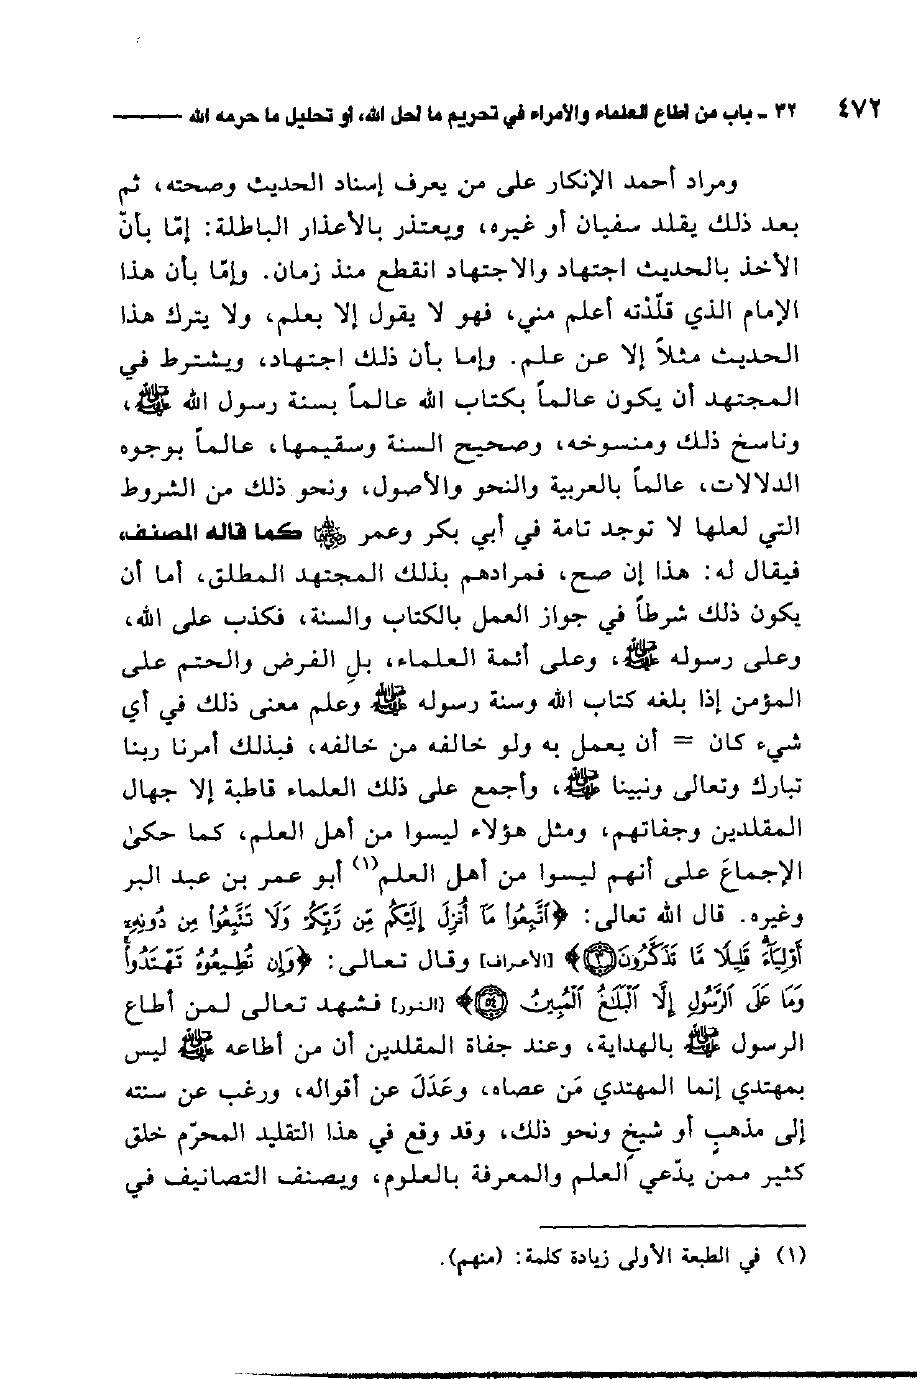 ٤٧٢ ٣٢ - باب من أطاع العلماء والأمراء في تحريم ما أحل الله، أو تحليل ما حرمه الله
ومراد أحمد الإنكار على من يعرف إسناد الحديث وصحته، ثم
بعد ذلك يقلد سفيان أو غيره، ويعتذر بالأعذار الباطلة: إمّا بأنّ
الأخذ بالحديث اجتهاد والاجتهاد انقطع منذ زمان. وإمّا بأن هذا
الإمام الذي قلّدْته أعلم مني، فهو لا يقول إلا بعلم، ولا يترك هذا
الحديث مثلاً إلا عن علم. وإما بأن ذلك اجتهاد، ويشترط في
المجتهد أن يكون عالماً بكتاب الله عالماً بسنة رسول الله ﷺ،
وناسخ ذلك ومنسوخه، وصحيح السنة وسقيمها، عالماً بوجوه
الدلالات، عالماً بالعربية والنحو والأصول، ونحو ذلك من الشروط
التي لعلها لا توجد تامة في أبي بكر وعمر رضي الله عنهما كما قاله المصنف،
فيقال له: هذا إن صح، فمرادهم بذلك المجتهد المطلق، أما أن
يكون ذلك شرطاً في جواز العمل بالكتاب والسنة، فكذب على الله،
وعلى رسوله ﷺ، وعلى أئمة العلماء، بلِ الفرض والحتم على
المؤمن إذا بلغه كتاب الله وسنة رسوله ﷺ وعلم معنى ذلك في أي
شيء كان = أن يعمل به ولو خالفه من خالفه، فبذلك أمرنا ربنا
تبارك وتعالى ونبينا ﷺ، وأجمع على ذلك العلماء قاطبة إلا جهال
المقلدين وجفاتهم، ومثل هؤلاء ليسوا من أهل العلم، كما حكىٰ
الإجماعَ على أنهم ليسوا من أهل العلم(١) أبو عمر بن عبد البر
وغيره. قال الله تعالى: ﴿ٱتَّبِعُوا۟ مَآ أُنزِلَ إِلَيْكُم مِّن رَّبِّكُمْ وَلَا تَتَّبِعُوا۟ مِن دُونِهِۦٓ
أَوْلِيَآءَ ۗ قَلِيلًا مَّا تَذَكَّرُونَ ٣﴾ [الأعراف] وقال تعالى: ﴿وَإِن تُطِيعُوهُ تَهْتَدُوا۟ ۚ
وَمَا عَلَى ٱلرَّسُولِ إِلَّا ٱلْبَلَٰغُ ٱلْمُبِينُ ٥٤﴾ [النور] فشهد تعالى لمن أطاع
الرسول ﷺ بالهداية، وعند جفاة المقلدين أن من أطاعه ﷺ ليس
بمهتدي إنما المهتدي مَن عصاه، وعَدَلَ عن أقواله، ورغب عن سنته
إلى مذهبٍ أو شيخٍ ونحو ذلك، وقد وقع في هذا التقليد المحرّم خلق
كثير ممن يدّعي العلم والمعرفة بالعلوم، ويصنف التصانيف في
(١) في الطبعة الأولى زيادة كلمة: (منهم).